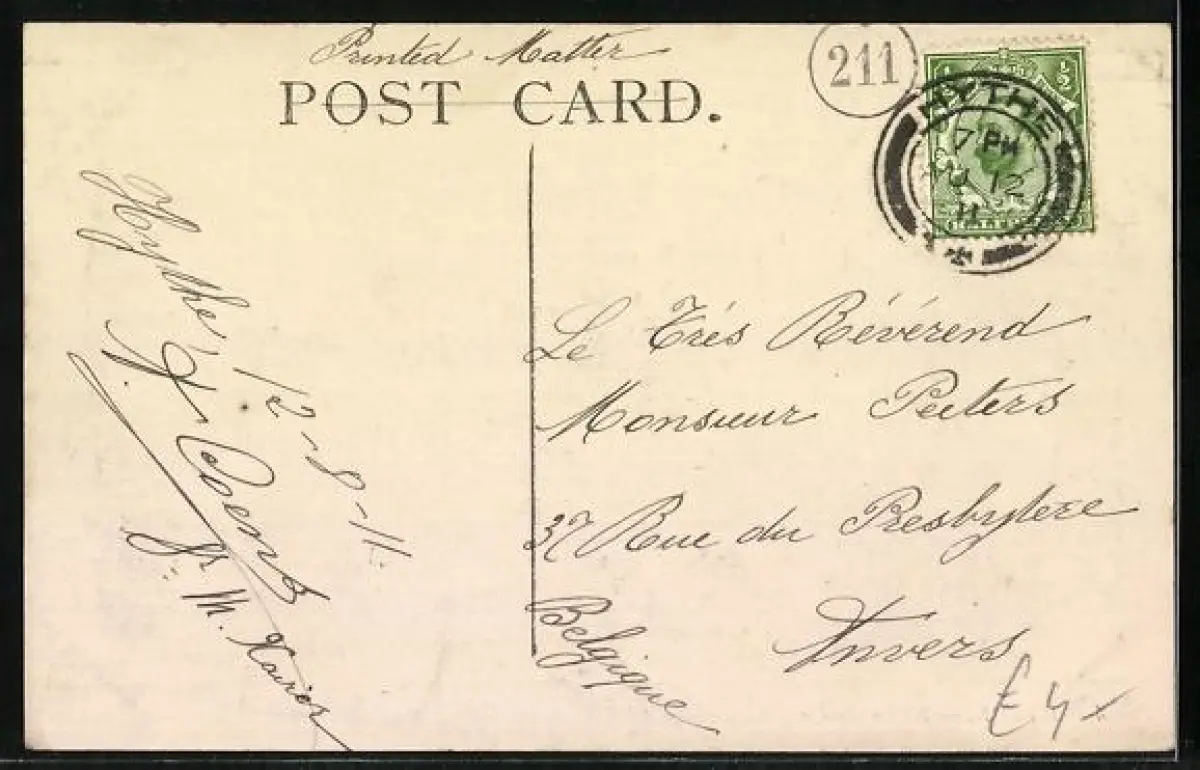 Printed Matter
POST CARD.
211
½
HYTHE
7 PM
AU 12
11
Hythe, 12-8-11.
Le Trés Révérend
Monsieur Peeters
37 Rue du Presbytere
Anvers
Belgique
£4